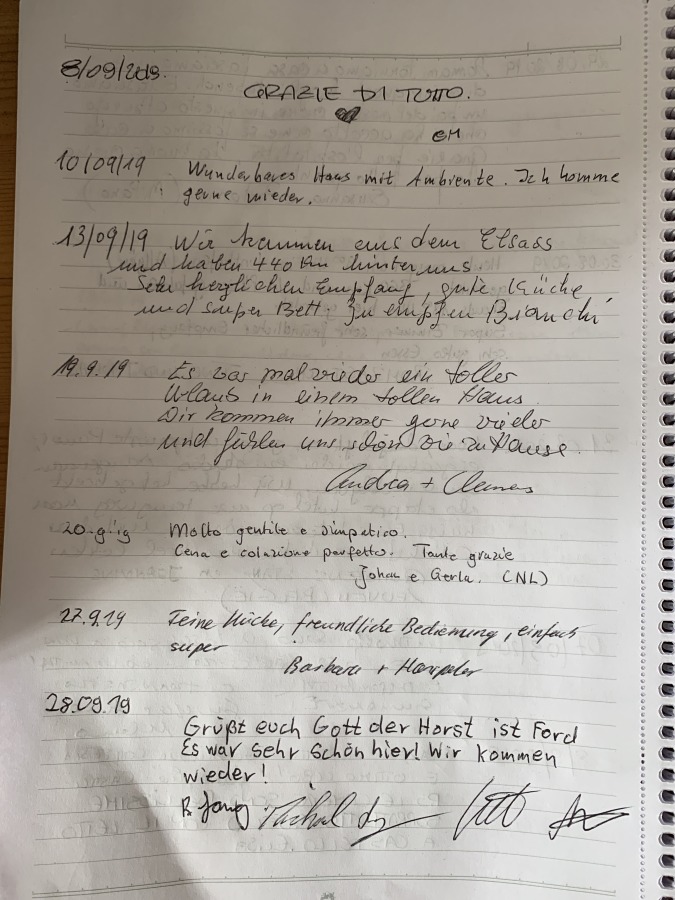 8/09/2019.
GRAZIE DI TUTTO.
10/09/19 Wunderbares Haus mit Ambiente. Ich komme
gerne wieder.
13/09/19 Wir kammen aus dem Elsass
und haben 440 km hinter uns.
Sehr herzlichen Empfang, gute Küche
und super Bett. Zu empfen Bianchi
19.9.19 Es war mal wieder ein toller
Urlaub in einem tollen Haus.
Wir kommen immer gerne wieder
und fühlen uns schön wie zu Hause.
Andrea + Clemens
20.9.19 Molto gentile e simpatico.
Cena e colazione perfetto. Tante grazie
Johan e Gerla. (NL)
27.9.19 Feine Küche, freundliche Bedienung, einfach
super
Barbara + Hanspeter
28.09.19
Grüßt euch Gott der Horst ist Ford
Es war sehr schön hier! Wir kommen
wieder!